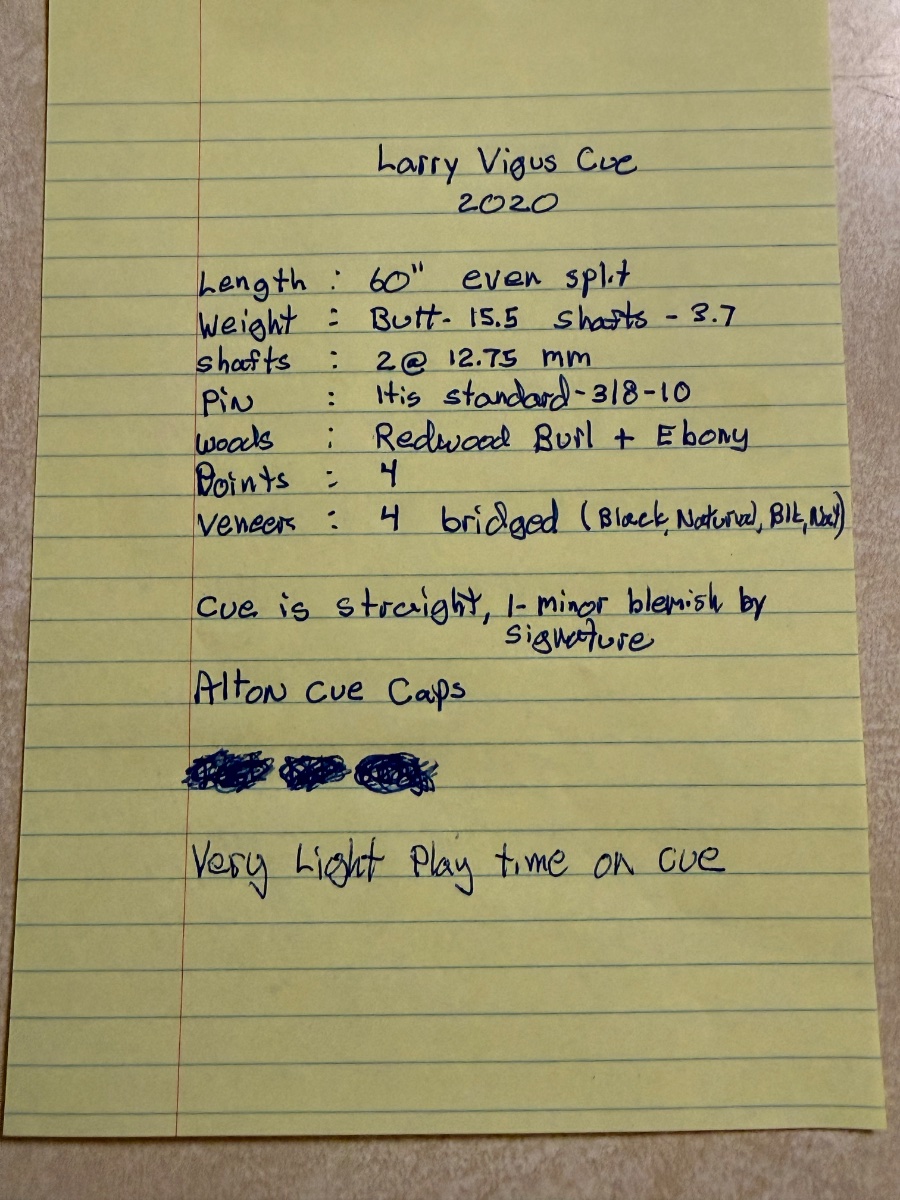 Larry Vigus Cue
2020
Length : 60" even split
Weight : Butt- 15.5 shafts - 3.7
shafts : 2@ 12.75 mm
PiN : His standard-3/8-10
woods : Redwood Burl + Ebony
Points : 4
veneers : 4 bridged (Black, Natural, Blk, Nat)
Cue is straight, 1- minor blemish by
signature
Alton Cue Caps
Very Light Play time on cue